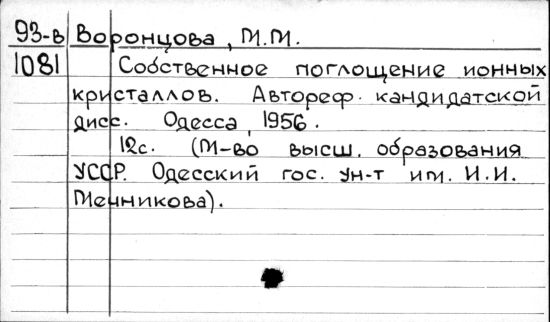 93-в Воронцова, М.М.
1081 Собственное поглощение ионных
кристаллов. Автореф. кандидатской
дисс. Одесса, 1956.
12с. (М-во высш. образования
УССР. Одесский гос. ун-т им. И.И.
Мечникова).